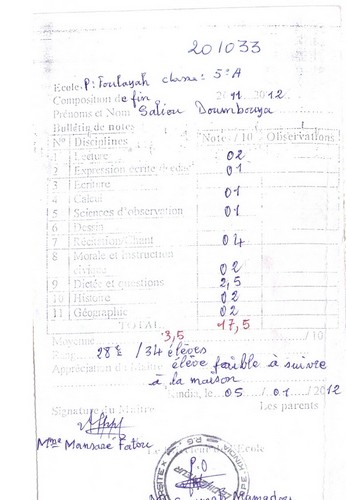 201033
Ecole P: Foulayah classe: 5e A
Composition de fin 2011 2012
Prénoms et Nom Saliou Doumbouya
Bulletin de notes
N° Disciplines Note / 10 Observations
1 Lecture 02
2 Expression écrite 01
3 Ecriture
4 Calcul 01
5 Sciences d'observation 01
6 Dessin
7 Récitation/Chant 04
8 Morale et instruction
civique 02
9 Dictée et questions 2,5
10 Histoire 02
11 Géographie 02
TOTAL 17,5
Moyenne 3,5 /10
Rang 28e /34 élèves
Appréciation du Maître élève faible à suivre
à la maison
Kindia, le 05 / 01 / 2012
Signature du Maître Les parents
Mme Mansaré Fatou
Le Directeur de l'Ecole
P.O